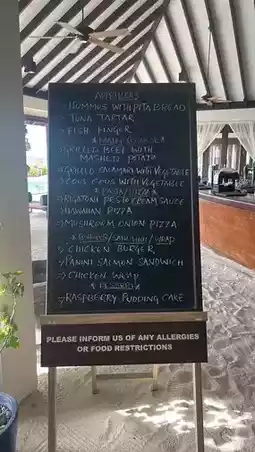 APPETIZERS
- HUMMUS WITH PITA BREAD
- TUNA TARTAR
- FISH FINGER
* MAIN COURSE *
- GRILLED BEEF WITH
MASHED POTATO
- GRILLED CALAMARI WITH VEGETABLE
- COUS COUS WITH VEGETABLE
* PASTA / PIZZA *
- RIGATONI PESTO CREAM SAUCE
- HAWAIIAN PIZZA
- MUSHROOM ONION PIZZA
* BURGER / SANDWICH / WRAP
- CHICKEN BURGER
- PANINI SALMON SANDWICH
- CHICKEN WRAP
* DESSERT *
- RASPBERRY PUDDING CAKE
PLEASE INFORM US OF ANY ALLERGIES
OR FOOD RESTRICTIONS